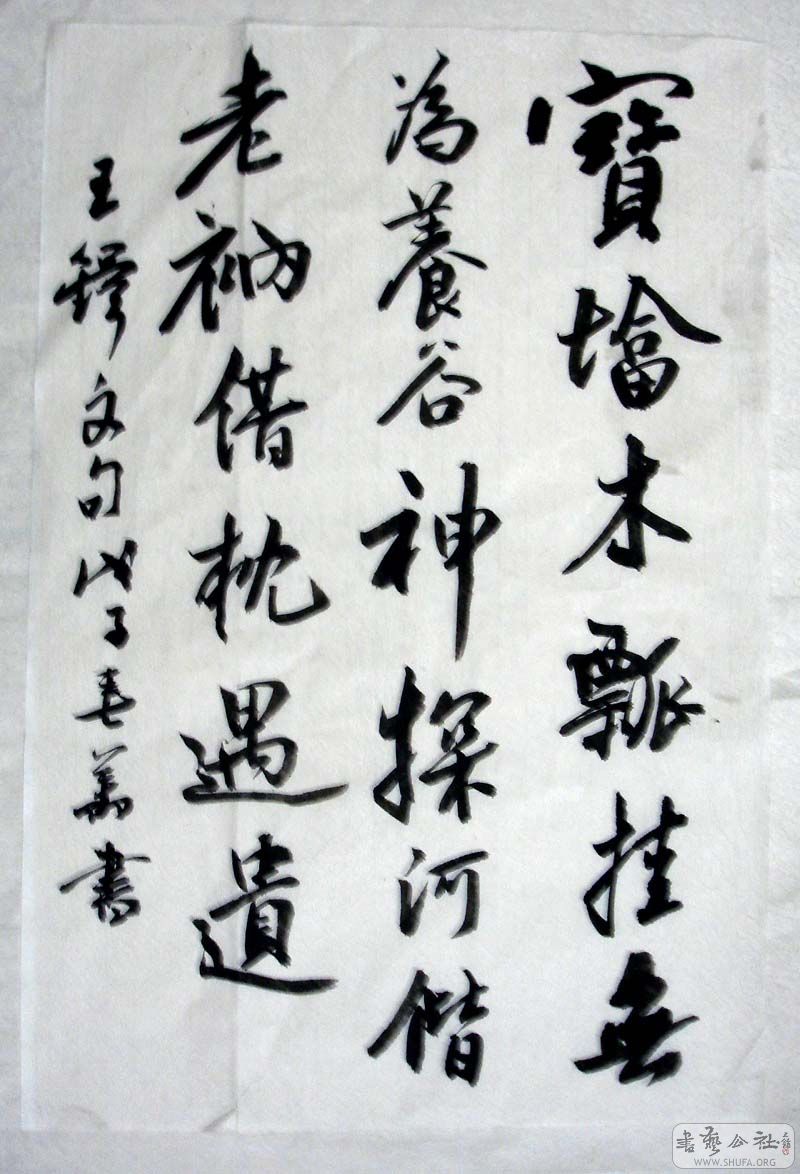 寶墖木瓢挂無
為養谷神探河偕
老衲借枕遇遺
王鐸文句戊子春萬書
書藝公社
WWW.SHUFA.ORG